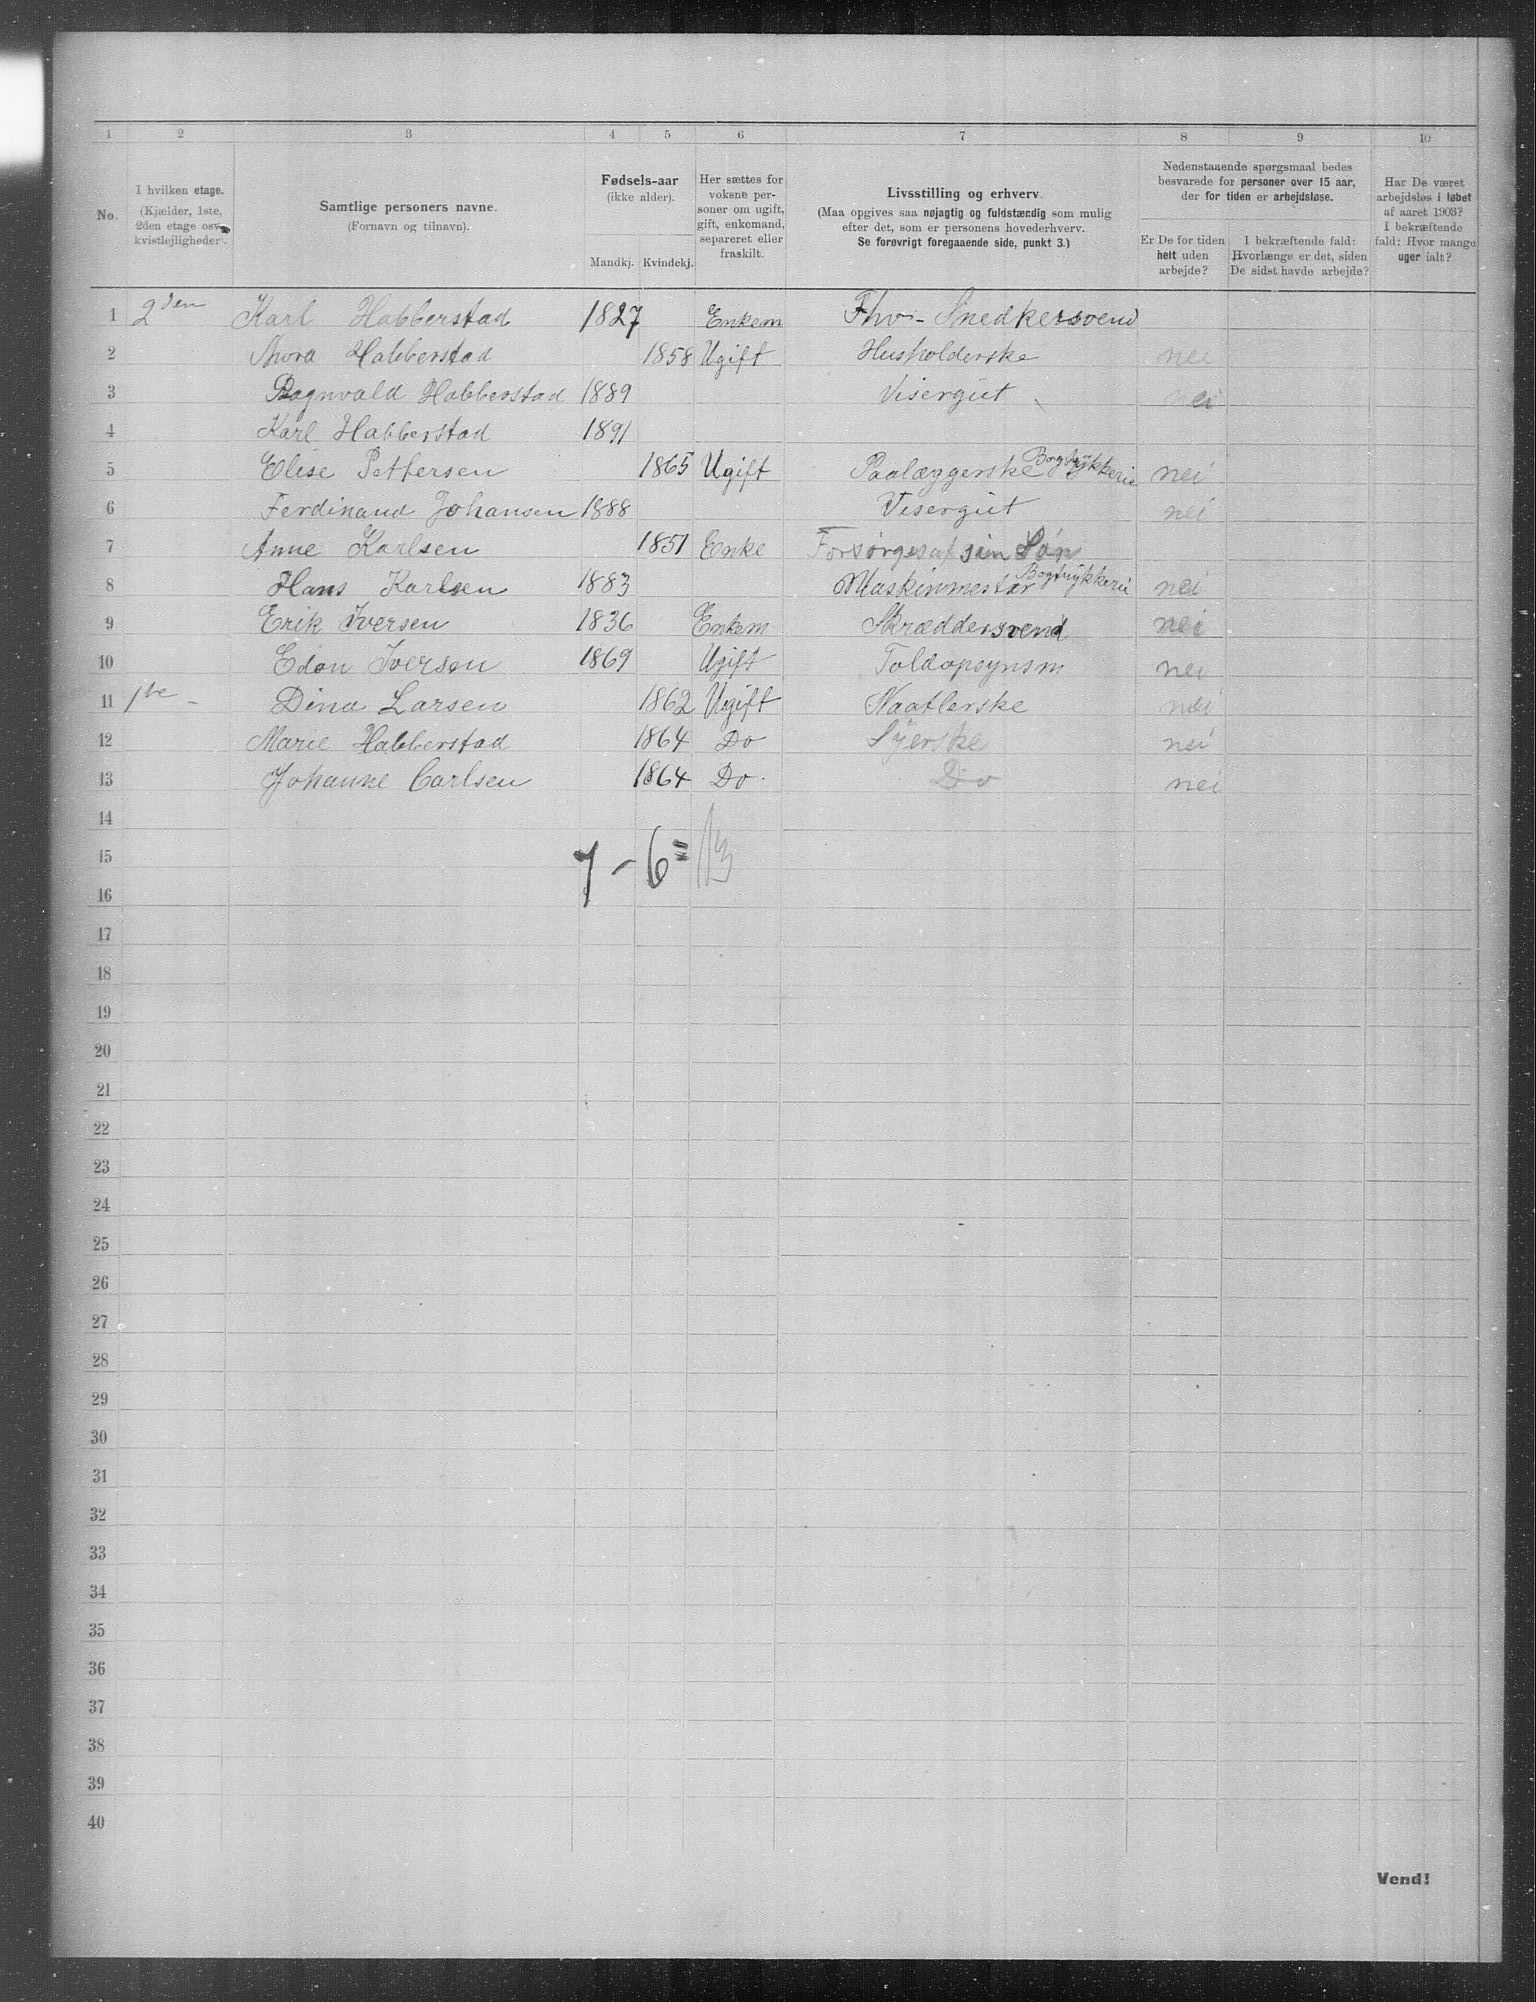 1 2 3 4 5 6 7 8 9 10
No.
I hvilken etage.
(Kjælder, 1ste,
2den etage osv.
kvistlejligheder).
Samtlige personers navne.
(Fornavn og tilnavn).
Fødsels-aar
(ikke alder).
Mandkj. Kvindekj.
Her sættes for
voksne per-
soner om ugift,
gift, enkemand,
separeret eller
fraskilt.
Livsstilling og erhverv.
(Maa opgives saa nøjagtig og fuldstændig som mulig
efter det, som er personens hovederhverv.
Se forøvrigt foregaaende side, punkt 3.)
Nedenstaaende spørgsmaal bedes
besvarede for personer over 15 aar,
der for tiden er arbejdsløse.
Er De for tiden
helt uden
arbejde?
I bekræftende fald:
Hvorlænge er det, siden
De sidst havde arbejde?
Har De været
arbejdsløs i løbet
af aaret 1903?
I bekræftende
fald: Hvor mange
uger ialt?
1 2den Karl Habberstad 1827 Enkem Fhv- Snedkersvend
2 Habberstad 1858 Ugift Husholderske nei
3 Ragnvald Habberstad 1889 Visergut nei
4 Karl Habberstad 1891
5 Elise Pettersen 1865 Ugift Paalæggerske Bogtrykkerie nei
6 Ferdinand Johansen 1888 Visergut nei
7 Anne Karlsen 1851 Enke Forsørges af sin Søn
8 Hans Karlsen 1883 Maskinmester Bogtrykkeri nei
9 Erik Iversen 1836 Enkem Skræddersvend nei
10 Edon Iversen 1869 Ugift Toldopsynsm nei
11 1te - Dina Larsen 1862 Ugift Naatlerske nei
12 Marie Habberstad 1864 Do Syerske nei
13 Johanne Carlsen 1864 Do. Do nei
14
15
7 - 6 = 13
16
17
18
19
20
21
22
23
24
25
26
27
28
29
30
31
32
33
34
35
36
37
38
39
40
Vend!